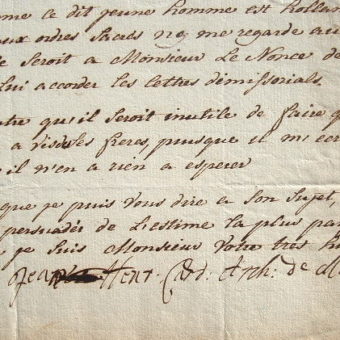 me ce dit jeune homme est holla
aux ordres sacrés ne me regarde au
le seroit a Monsieur Le Nonce de
lui accorder les lettres demissorials.
tre qu'il seroit inutile de faire q
a ses freres, puisque il m'ec
il n'en a rien a esperer
que je puis vous dire a son sujet,
persuadér de L'estime la plus par
je suis Monsieur Votre tres hu
Jean Henr. Card: Arch: de M